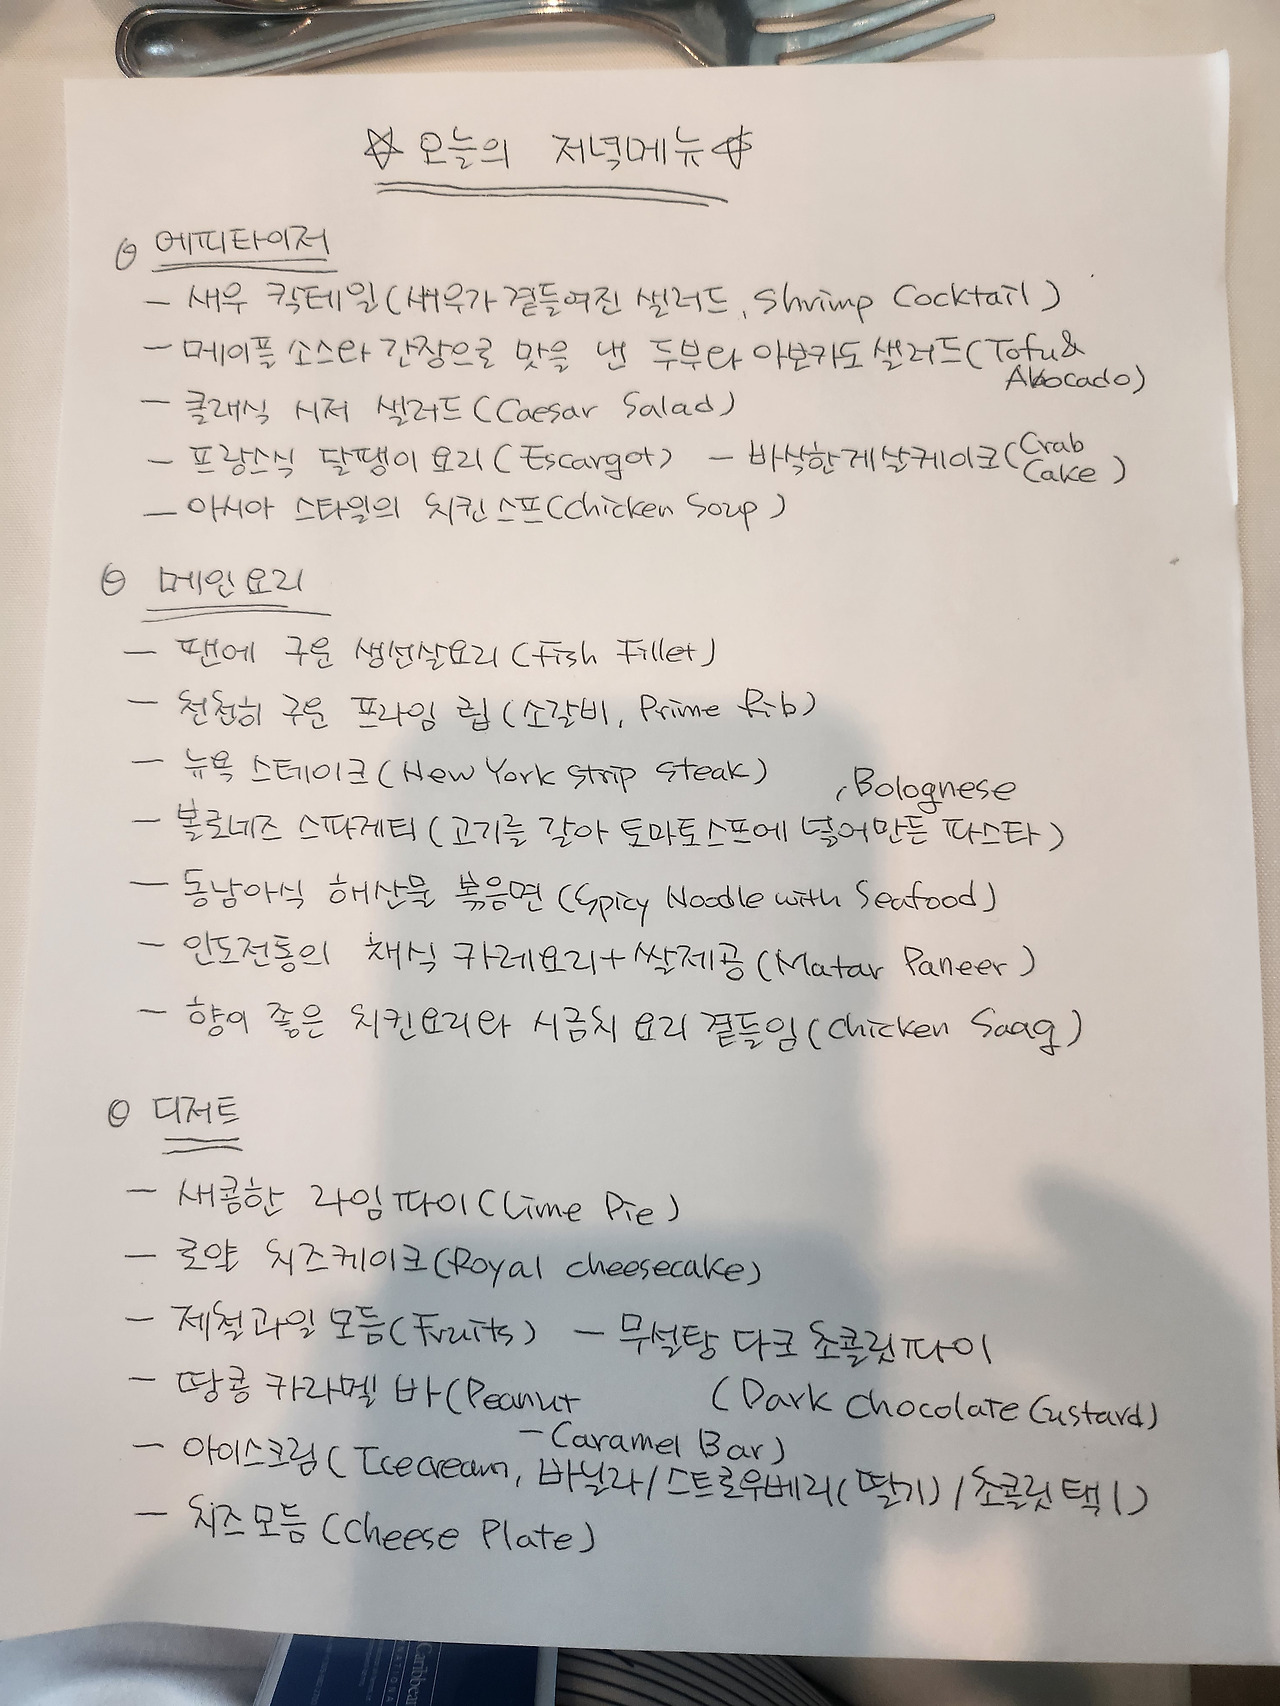 ☆ 오늘의 저녁메뉴 ☆
에피타이저
- 새우 칵테일(새우가 곁들여진 샐러드, Shrimp Cocktail)
- 메이플 소스와 간장으로 맛을 낸 두부와 아보카도 샐러드(Tofu & Avocado)
- 클래식 시저 샐러드(Caesar Salad)
- 프랑스식 달팽이 요리(Escargot) - 바삭한게살케이크(Crab Cake)
- 아시아 스타일의 치킨스프(Chicken Soup)
메인요리
- 팬에 구운 생선살요리(Fish Fillet)
- 천천히 구운 프라임 립(소갈비, Prime Rib)
- 뉴욕 스테이크(New York Strip Steak)
, Bolognese
- 볼로네즈 스파게티(고기를 갈아 토마토스프에 넣어만든 파스타)
- 동남아식 해산물 볶음면(Spicy Noodle with Seafood)
- 인도전통의 채식 카레요리+쌀제공(Matar Paneer)
- 향이 좋은 치킨요리와 시금치 요리 곁들임(Chicken Saag)
디저트
- 새콤한 라임파이(Lime Pie)
- 로얄 치즈케이크(Royal Cheesecake)
- 제철과일 모듬(Fruits) - 무설탕 다크 초콜릿파이
(Dark Chocolate Custard)
- 땅콩 카라멜 바(Peanut
-Caramel Bar)
- 아이스크림(Icecream, 바닐라/스트로우베리(딸기)/초콜릿 택1)
- 치즈모듬(Cheese Plate)
Caribbean